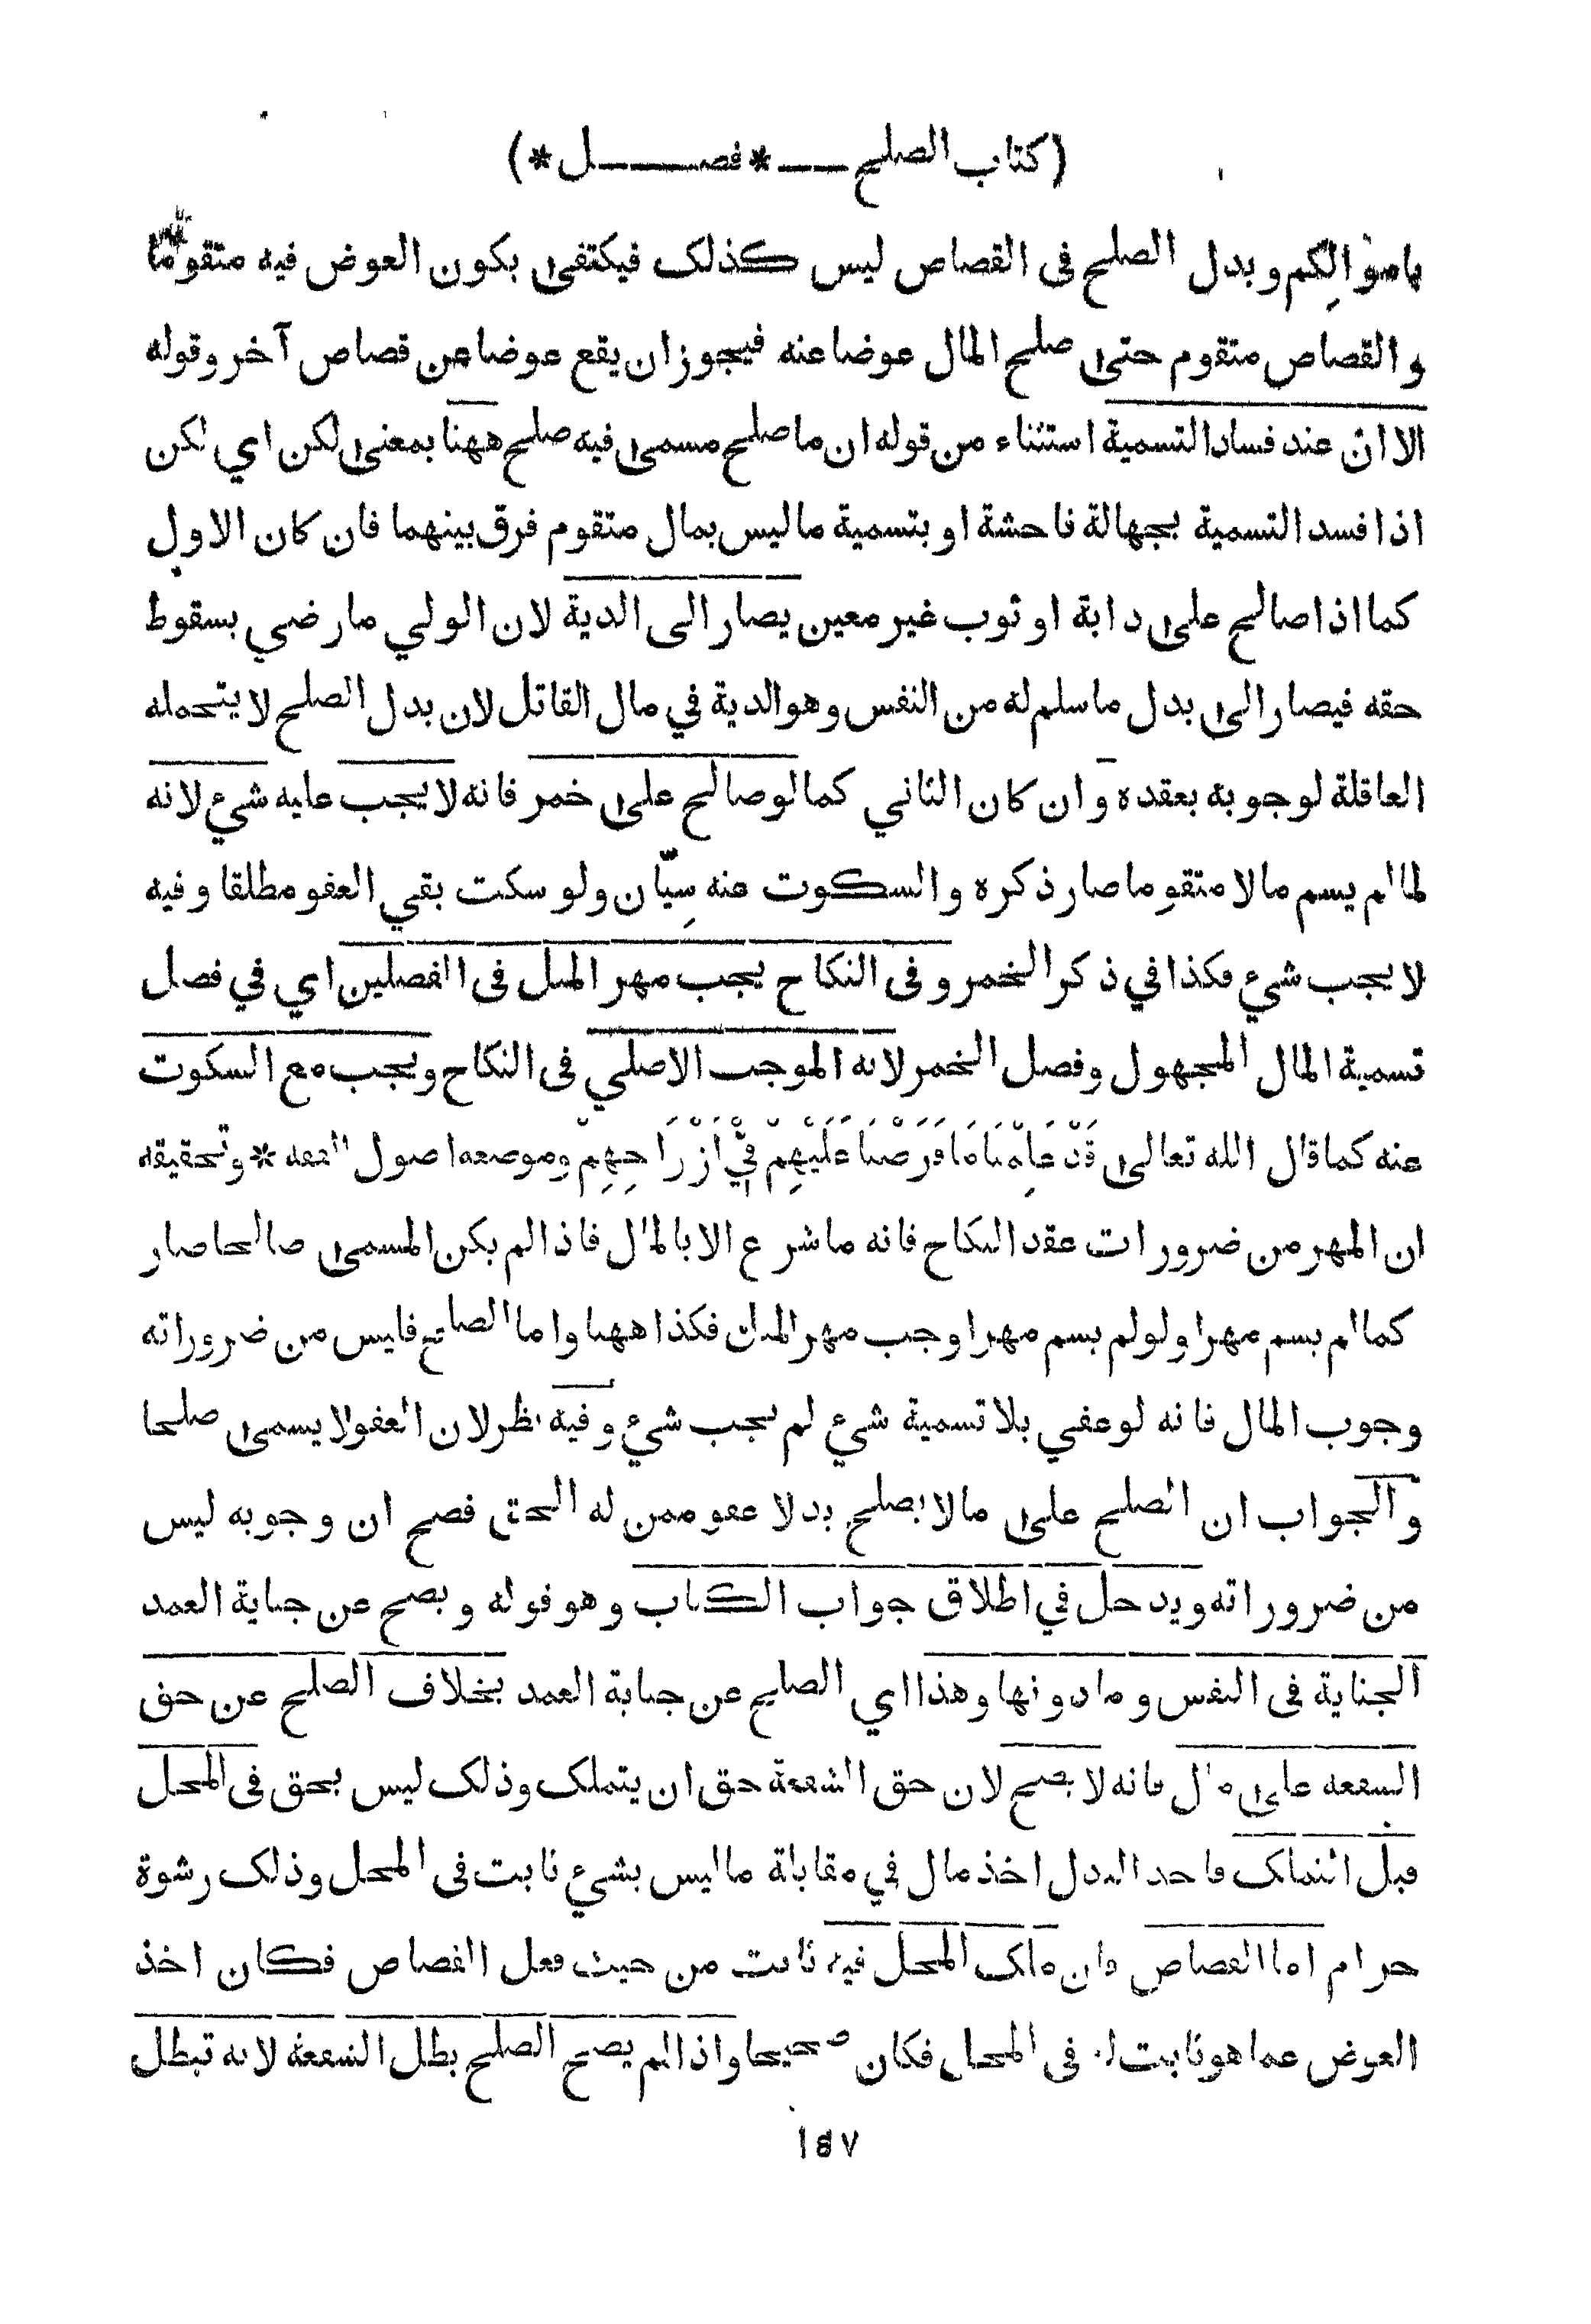 (كتاب الصلح — * فصل *)
باموالكم وبدل الصلح فى القصاص ليس كذلك فيكتفى بكون العوض فيه متقوما
والقصاص متقوم حتى صلح المال عوضا عنه فيجوز ان يقع عوضا عن قصاص آخر وقوله
الا ان عند فساد التسمية استثناء من قوله ان ما صلح مسمى فيه صلح ههنا بمعنى لكن اي لكن
اذا فسد التسمية بجهالة فاحشة او بتسمية ما ليس بمال متقوم فرق بينهما فان كان الاول
كما اذا صالح على دابة او ثوب غير معين يصار الى الدية لان الولي ما رضي بسقوط
حقه فيصار الى بدل ما سلم له من النفس وهو الدية في مال القاتل لان بدل الصلح لا يتحمله
العاقلة لوجوبه بعقده وان كان الثاني كما لو صالح على خمر فانه لا يجب عليه شيء لانه
لما لم يسم مالا متقوما صار ذكره والسكوت عنه سِيّان ولو سكت بقي العفو مطلقا وفيه
لا يجب شيء فكذا في ذكر الخمر وفى النكاح يجب مهر المثل فى الفصلين اي في فصل
تسمية المال المجهول وفصل الخمر لانه الموجب الاصلي فى النكاح ويجب مع السكوت
عنه كما قال الله تعالى قَدْ عَلِمْنَا مَا فَرَضْنَا عَلَيْهِمْ فِيْ اَزْوَاجِهِمْ وموضعه اصول الفقه * وتحقيقه
ان المهر من ضرورات عقد النكاح فانه ما شرع الا بالمال فاذا لم يكن المسمى صالحا صار
كما لم يسم مهرا ولو لم يسم مهرا وجب مهر المثل فكذا ههنا واما الصلح فليس من ضروراته
وجوب المال فانه لو عفي بلا تسمية شيء لم يجب شيء وفيه نظر لان العفو لا يسمى صلحا
والجواب ان الصلح على ما لا يصلح بدلا عفو ممن له الحق فصح ان وجوبه ليس
من ضروراته ويدخل في اطلاق جواب الكتاب وهو قوله ويصح عن جناية العمد
الجناية فى النفس وما دونها وهذا اي الصلح عن جناية العمد بخلاف الصلح عن حق
الشفعة على مال فانه لا يصح لان حق الشفعة حق ان يتملك وذلك ليس بحق فى المحل
قبل التملك فاخذ البدل اخذ مال في مقابلة ما ليس بشيء ثابت فى المحل وذلك رشوة
حرام اما القصاص فان ملك المحل فيه ثابت من حيث فعل القصاص فكان اخذ
العوض عما هو ثابت له فى المحل فكان صحيحا واذا لم يصح الصلح بطل الشفعة لانه تبطل
١٥٧